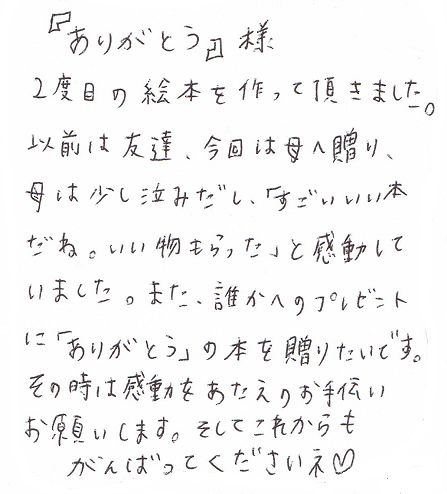 『ありがとう』様
2度目の絵本を作って頂きました。
以前は友達、今回は母へ贈り、
母は少し泣みだし、「すごいいい本
だね。いい物もらった」と感動して
いました。また、誰かへのプレゼント
に「ありがとう」の本を贈りたいです。
その時は感動をあたえのお手伝い
お願いします。そしてこれからも
がんばってくださいネ♡